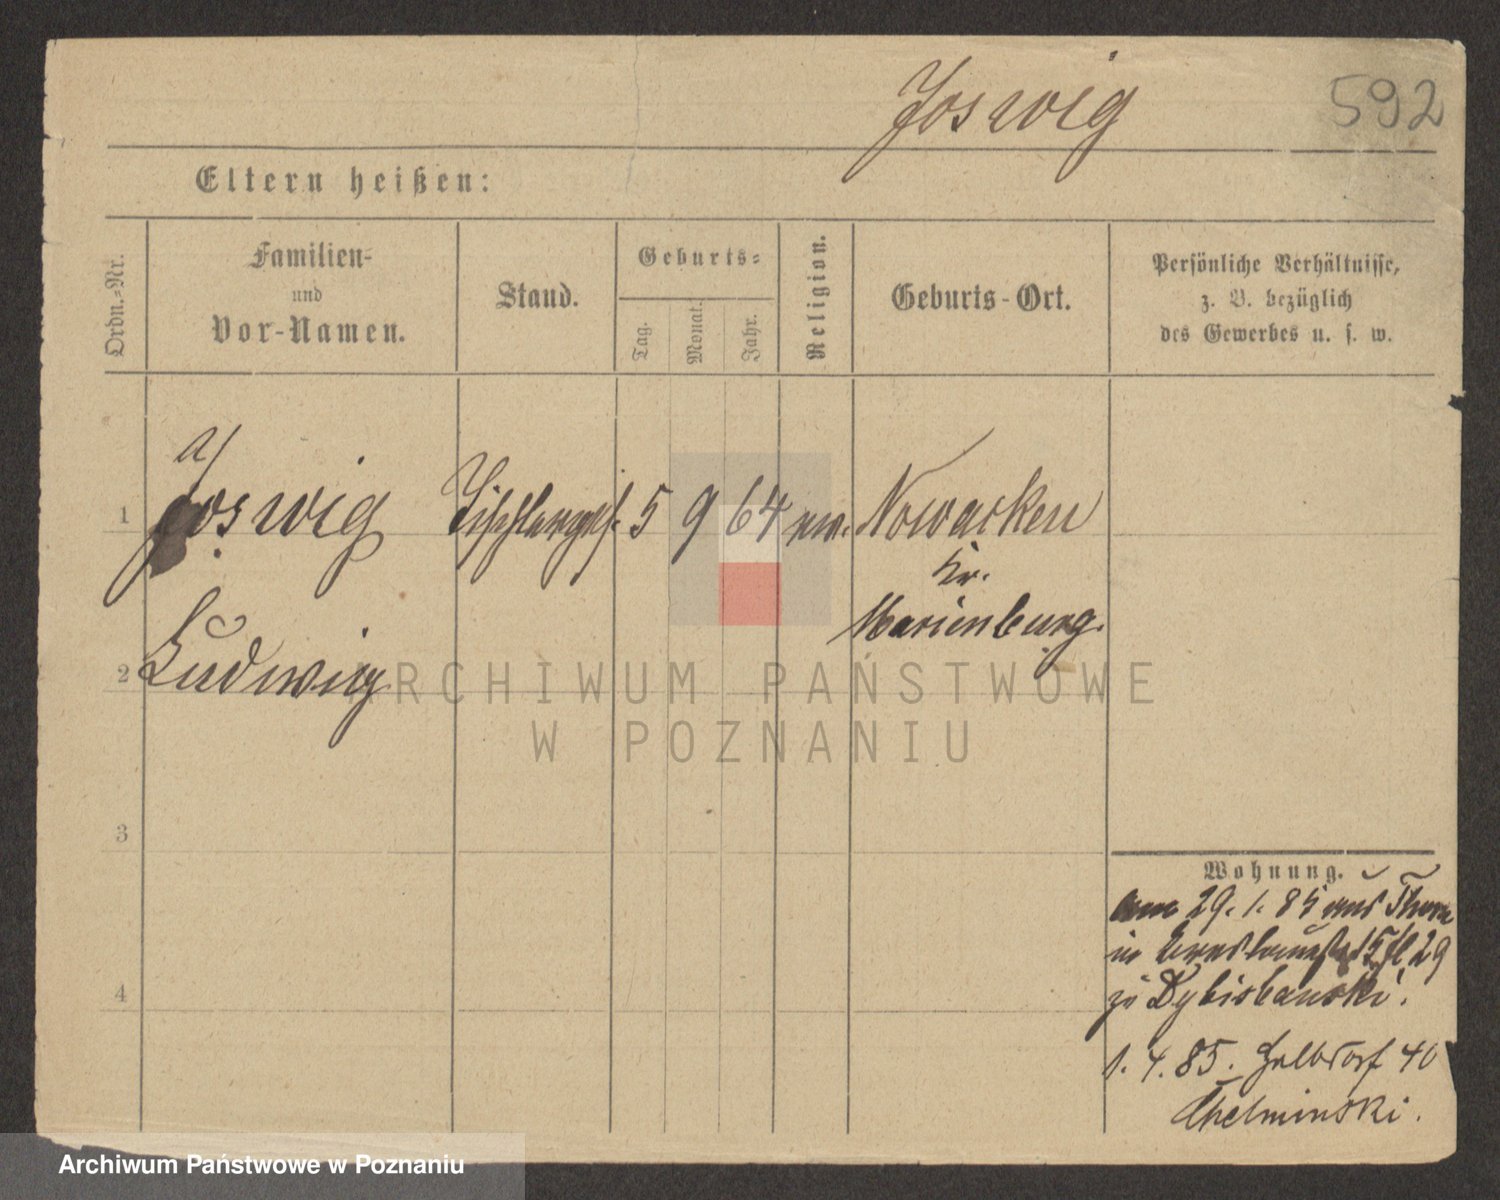 Joswig
592
Eltern heißen:
Ordn.-Nr.
Familien-
und
Vor-Namen.
Stand.
Geburts-
Tag.
Monat.
Jahr.
Religion.
Geburts-Ort.
Persönliche Verhältnisse,
z. B. bezüglich
des Gewerbes u. s. w.
a/
1 Joswig Tischlerges. 5 9 64 ev. Nowacken
Kr.
Marienburg.
2 Ludwig
3
4
Wohnung.
am 29. 1. 85 aus Thorn
in 29
zu Dybisbanski.
1. 4. 85. Halbdorf 40
Chelminski.
ARCHIWUM PAŃSTWOWE
W POZNANIU
Archiwum Państwowe w Poznaniu